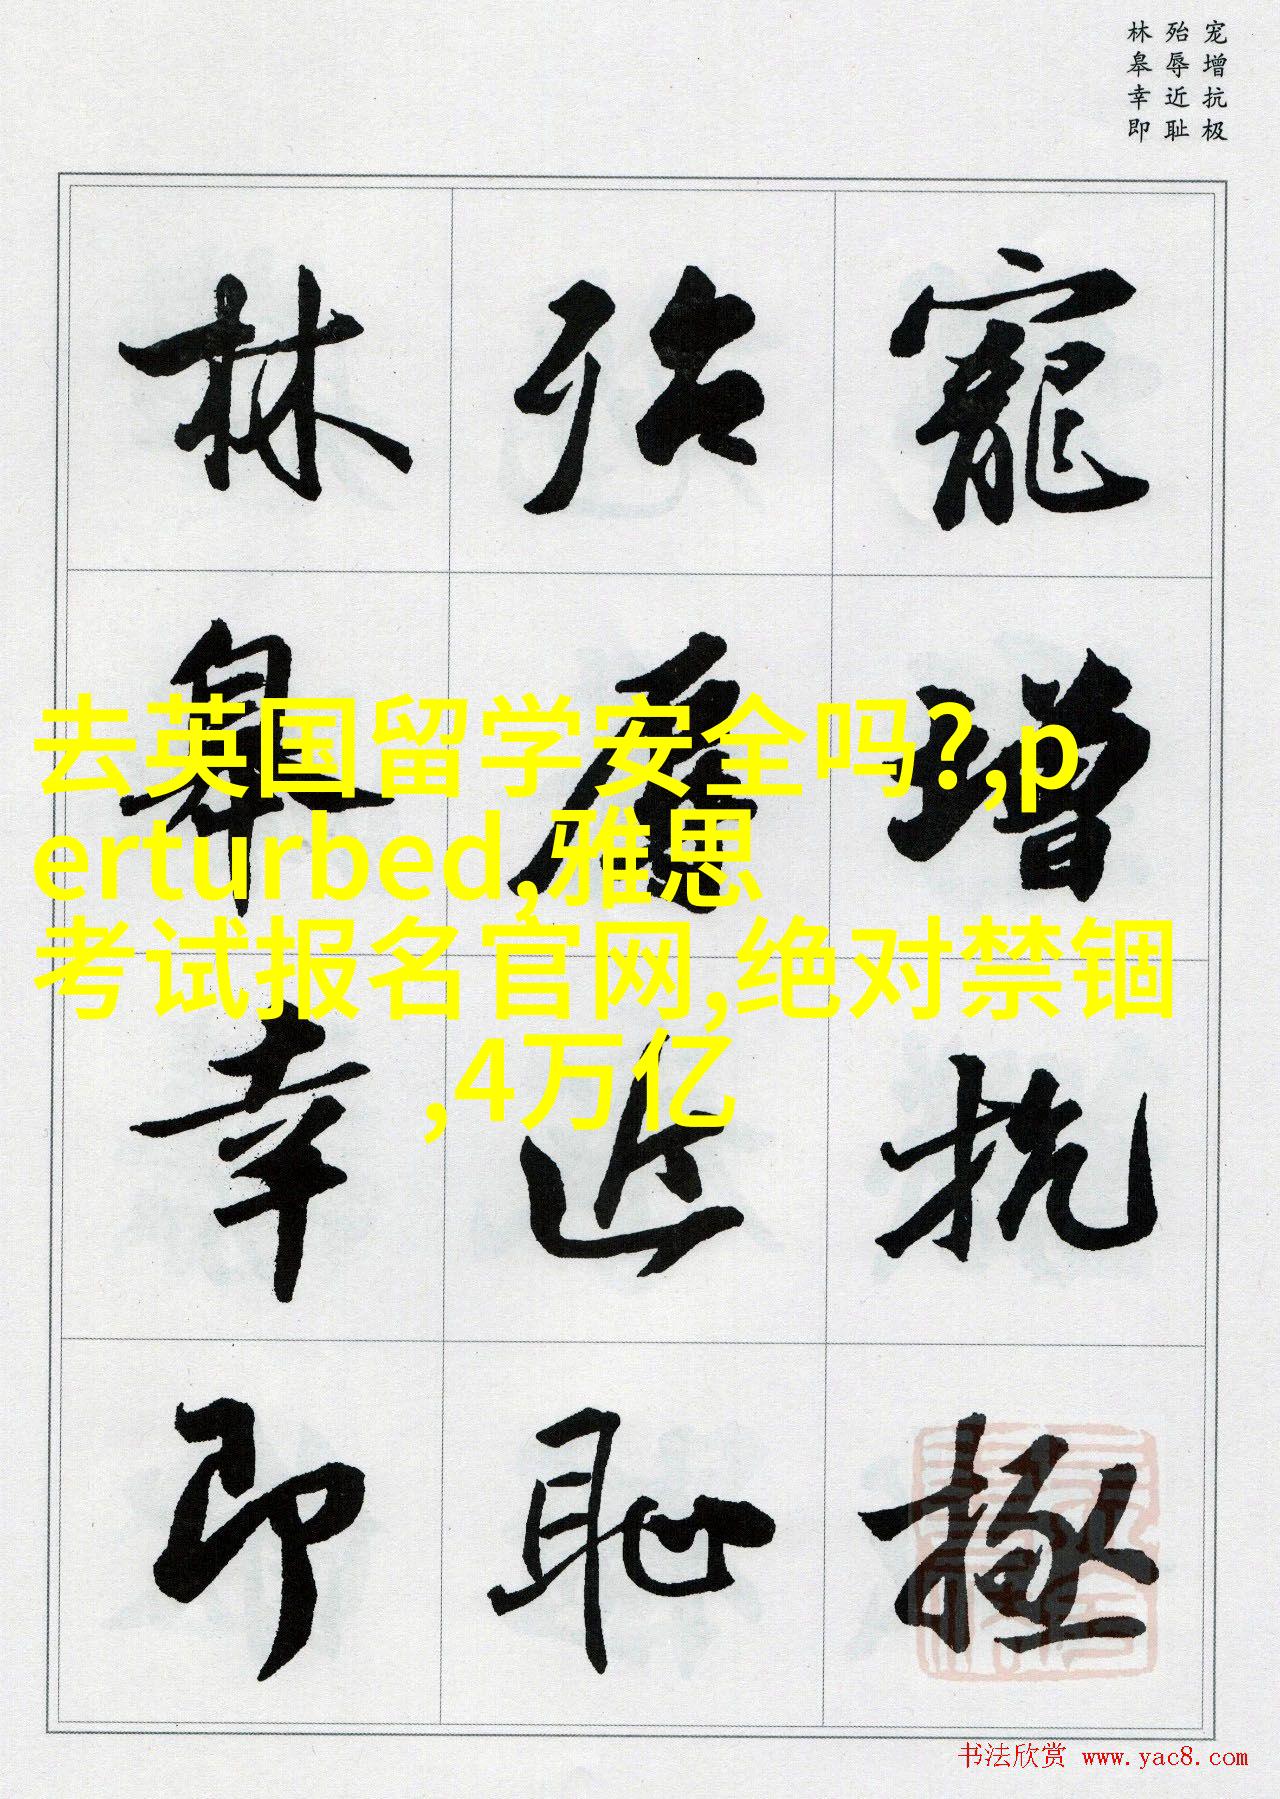 宠增抗极
殆辱近耻
林皋幸即
寵增抗極
殆辱近恥
林皋幸即
去英国留学安全吗?,p
erturbed,雅思
考试报名官网,绝对禁锢
,4万亿
书法欣赏 www.yac8.com